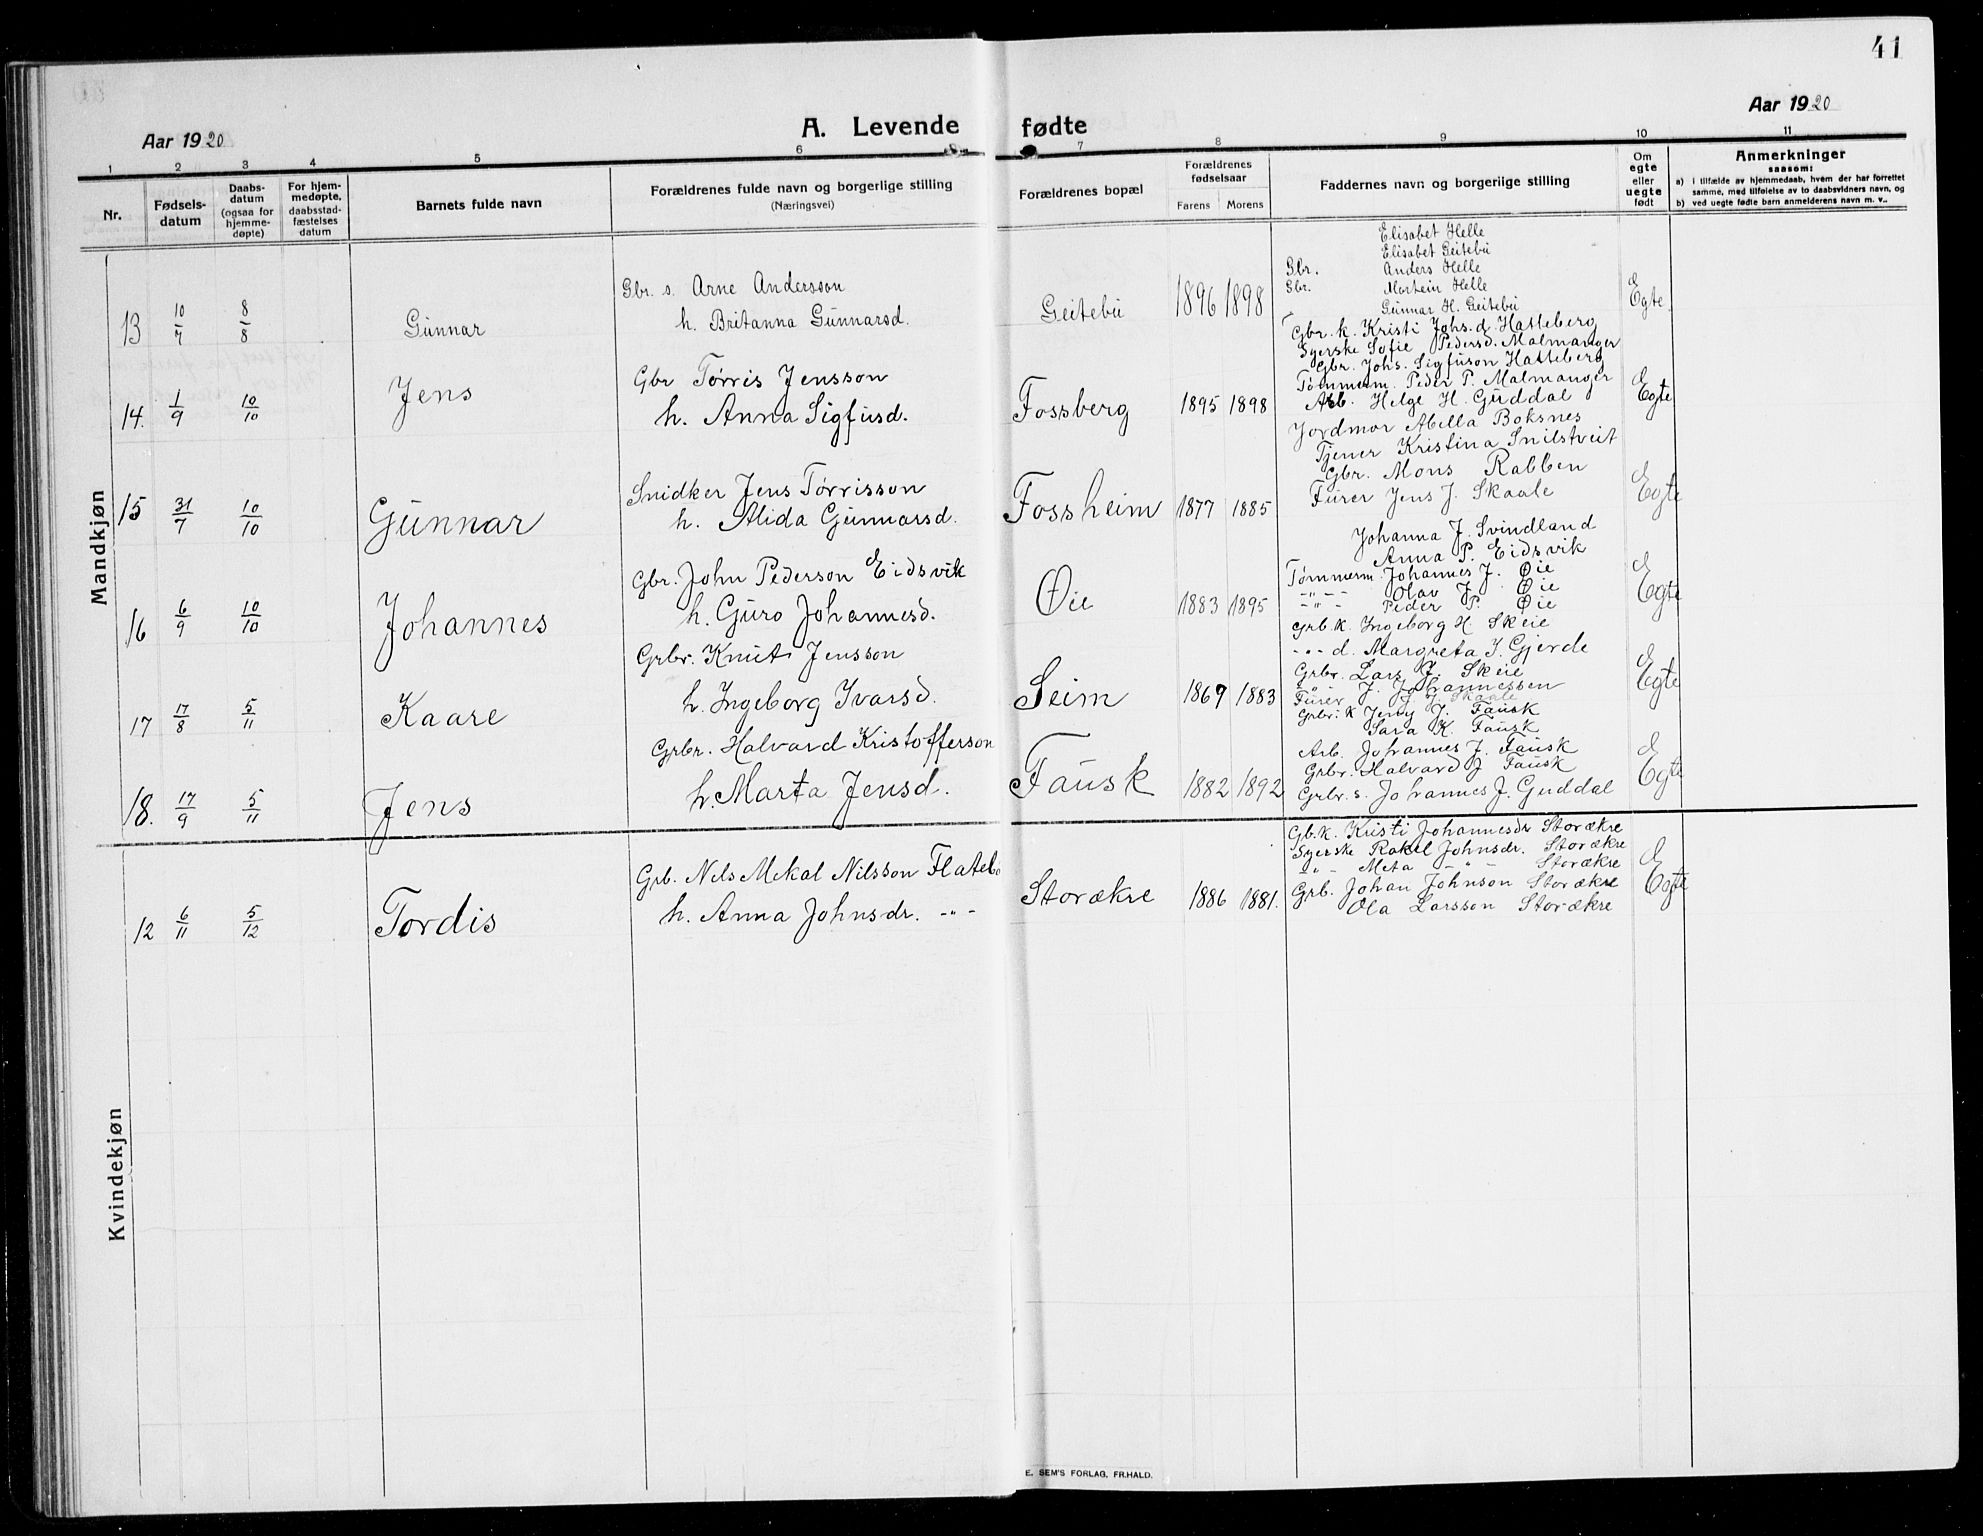 41
Aar 1920
A. Levende fødte
Aar 1920
1 2 3 4 5 6 7 8 9 10 11
Nr.
Fødsels-datum
Daabs-datum (ogsaa for hjemme-døpte)
For hjem-medøpte, daabsstad-fæstelses datum
Barnets fulde navn
Forældrenes fulde navn og borgerlige stilling
(Næringsvei)
Forældrenes bopæl
Forældrenes fødselsaar
Farens Morens
Faddernes navn og borgerlige stilling
Om egte eller uegte født
Anmerkninger
saasom:
a) i tilfælde av hjemmedaab, hvem der har forrettet samme, med tilføielse av to daabsvidners navn, og
b) ved uegte fødte barn anmelderens navn m. v..
Mandkjøn
13 10/7 8/8 Gunnar
Gbr. s. Arne Andersson
h. Britanna Gunnarsd.
Geitebü 1896 1898
Elisabet Helle
Elisabet Geitebü
Gbr. Anders Helle
Gbr. Mortein Helle
Gunnar H. Geitebü
Egte.
14. 1/9 10/10 Jens
Gbr Tørris Jensson
h. Anna Sigfusd.
Fossberg 1895 1898
Gbr. k. Kristi Johs. d. Hatteberg
Syerske Sofie Pedersd. Malmanger
Gbr. Johs. Sigfuson Hatteberg
Tømmerm. Peder P. Malmanger
Arb. Helge H. Guddal
Egte
15 31/7 10/10 Gunnar
Snidker Jens Tørrisson
h. Alida Gunnarsd.
Fossheim 1877 1885
Jordmor Abella Boksnes
Tjener Kristina Snilstveit
Gbr. Mons Rabben
Furer Jens J. Skaale
Egte
16 6/9 10/10 Johannes
Gbr. John Pederson Eidsvik
h. Guro Johannesd.
Øie 1883 1895
Johanna J. Svindland
Anna P. Eidsvik
Tømmerm. Johannes J. Øie
-"- - Olav J. Øie
-"- Peder P. Øie
Egte
17 17/8 5/11 Kaare
Grbr. Knut Jensson
h. Ingeborg Ivarsd.
Seim 1869 1883
Grb.k. Ingeborg H. Skeie
-"- d. Margreta I. Gjerde
Grbr. Lars J. Skeie
-"- J. Johannessen
Furer J. J. Skaale
Egte
18. 17/9 5/11 Jens
Grbr. Halvard Kristofferson
h. Marta Jensd.
Fausk 1882 1892
Grbr. k Jeny J. Fausk
Sara K. Fausk
Arb. Johannes J. Fausk
Grbr. Halvard J Fausk
Grbr. s. Johannes J. Guddal
Egte
Kvindekjøn
12 6/11 5/12 Tordis
Grb. Nils Mekal Nilsson Flatebø
h. Anna Johnsdr. -"-
Storækre 1886 1881.
Gb.k. Kristi Johannesdr Storækre
Syerske Rakel Johnsdr. Storækre
-"- Meta -"- Storækre
Grb. Johan Johnson Storækre
Ola Larsson Storækre
Egte
E. SEM'S FORLAG, FR.HALD.